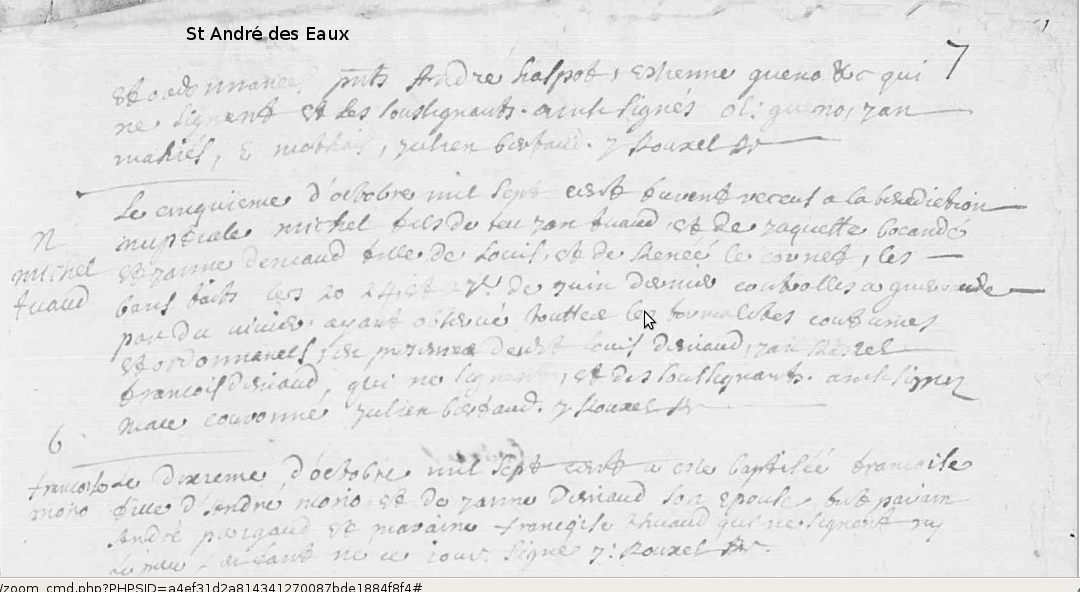 St André des Eaux
7
et ordonnances pnts André halpot, Estienne gueno &c qui
ne signent et les soussignants. ainsi signés ol: gueno, jan
mahies, julien bertaud. J Rouxel
Le cinquieme d'octobre mil sept cent furent receus a la benediction
N
nuptiale michel fils de feu jan fuaud et de jaquette bocande
michel
et janne deniaud fille de Louis, et de Renéé le cornet, les
fuaud
bans faits les 20 24 et 27e de juin dernier controlles a guerande
par du ayant observé touttes les formalites coutumes
et ordonnances, en presence de Louis deniaud, jan
francois deniaud, qui ne signent, et des soussignants. ainsi signez
julien bertaud. J Rouxel
6
francoise Le dixieme d'octobre mil sept cent a este baptiséé francoise
mono fille d'André mono et de janne deniaud son epouse, fut parain
André et maraine francoise fhuaud qui ne signent ny
ne ce jour. Signe J: Rouxel
/zoom_cmd.php?PHPSID=a4ef31d2a814341270087bde1884f8f4#